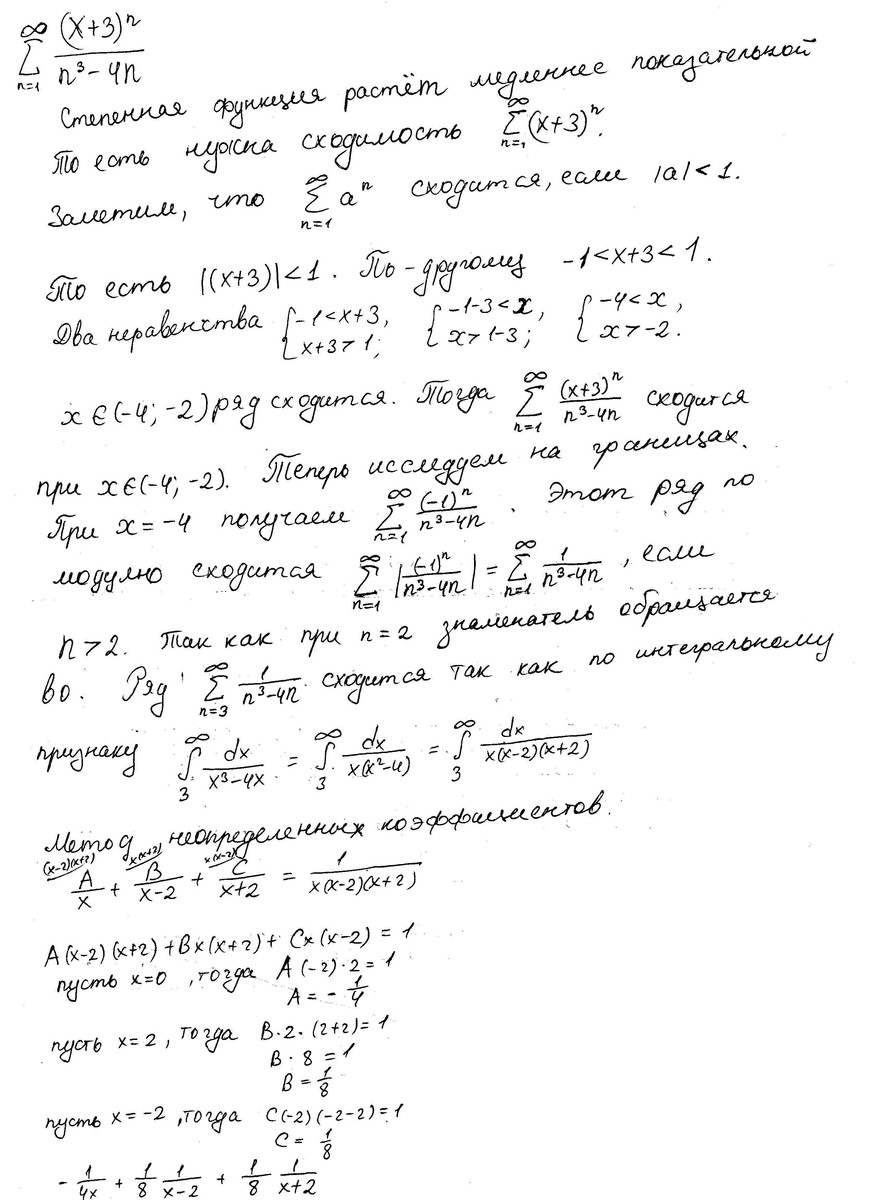 ∑_{n=1}^{∞} (x+3)^n / (n³-4n)
Степенная функция растёт медленнее показательной
То есть нужна сходимость ∑_{n=1}^{∞} (x+3)^n.
Заметим, что ∑_{n=1}^{∞} a^n сходится, если |a|<1.
То есть |(x+3)|<1. По-другому -1<x+3<1.
Два неравенства { -1<x+3, x+3>1; { -1-3<x, x>1-3; { -4<x, x>-2.
x∈(-4; -2) ряд сходится. Тогда ∑_{n=1}^{∞} (x+3)^n / (n³-4n) сходится
при x∈(-4; -2). Теперь исследуем на границах.
При x=-4 получаем ∑_{n=1}^{∞} (-1)^n / (n³-4n). Этот ряд по
модулю сходится ∑_{n=1}^{∞} |(-1)^n / (n³-4n)| = ∑_{n=1}^{∞} 1 / (n³-4n), если
n>2. Так как при n=2 знаменатель обращается
в 0. Ряд ∑_{n=3}^{∞} 1 / (n³-4n) сходится так как по интегральному
признаку ∫_{3}^{∞} dx / (x³-4x) = ∫_{3}^{∞} dx / (x(x²-4)) = ∫_{3}^{∞} dx / (x(x-2)(x+2))
Метод неопределенных коэффициентов.
(x-2)(x+2) x(x+2) x(x-2)
A/x + B/(x-2) + C/(x+2) = 1 / (x(x-2)(x+2))
A(x-2)(x+2)+Bx(x+2)+Cx(x-2)=1
пусть x=0, тогда A(-2)·2=1
A=-1/4
пусть x=2, тогда B·2·(2+2)=1
B·8=1
B=1/8
пусть x=-2, тогда C(-2)(-2-2)=1
C=1/8
-1/(4x) + 1/8 1/(x-2) + 1/8 1/(x+2)